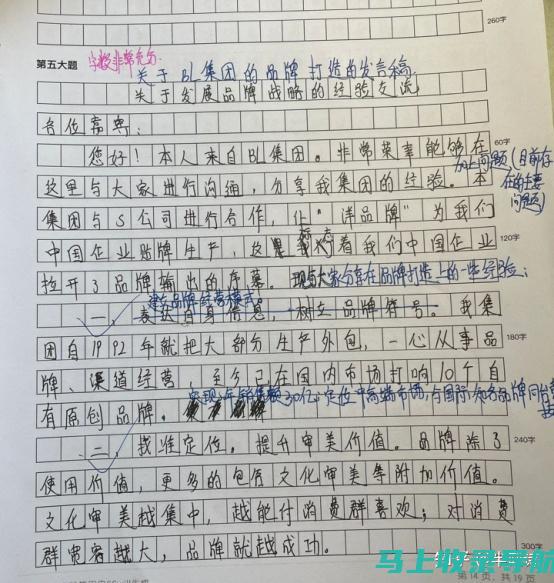 260字
第五大题 字数非常充分
关于BL集团的品牌打造的发言稿
关于发展品牌战略的经验交流
各位嘉宾:
60字
您好!本人来自BL集团。非常荣幸能够在
加上问题(目前存在的主要问题)
这里与大家进行沟通,分享我集团的经验。本
集团与S公司进行合作,让“洋品牌”为我们
中国企业贴牌生产,这标志着我们中国企业
120字
拉开了品牌输出的序幕。现与大家分享在品牌打造上的一些经验:
建立品牌经营模式。
一,表达自身信息,树立品牌符号。我集
团自1992年就把大部分生产外包,一心从事品
180字
牌、渠道经营,至今已在国内市场打响10个自
实现年销售额30亿;定位中高端市场,与国际知名品牌同台竞技
有原创品牌。
二,找准定位。提升审美价值。品牌除了
240字
使用价值,更多的包含文化审美等附加价值。
文化审美越集中,越能付消费群喜欢;对消费
群宽容越大,品牌就越成功。
300字
马上收录导航
第14页,共19页